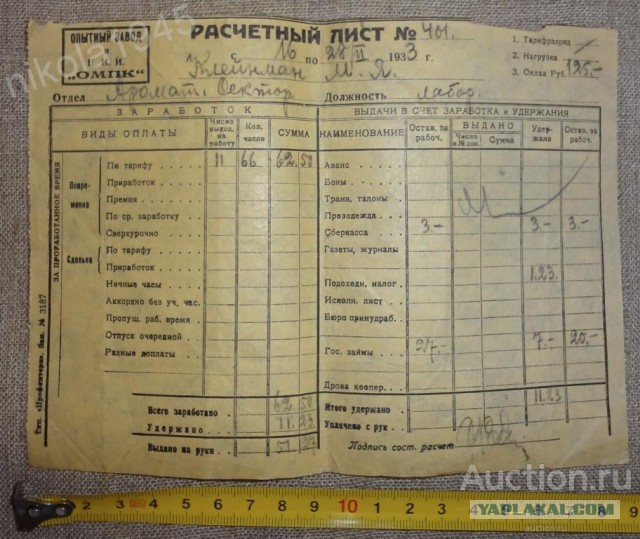 nikola1945
ОПЫТНЫЙ ЗАВОД
и
Н. И. И.
"ОМПК"
РАСЧЕТНЫЙ ЛИСТ № 401.
с 16 по 28/II 1933 г.
Клейнман М. Я.
1. Тарифразряд
2. Нагрузка
3. Оклад Руб. 125-
Отдел Аромат. Сектор Должность лабор.
ЗАРАБОТОК
ВИДЫ ОПЛАТЫ
Число выход. на работу
Кол. часов
СУММА
ЗА ПРОРАБОТАННОЕ ВРЕМЯ
Повременно
По тарифу 11 66 62.50
Приработок
Премия
По ср. заработку
Сверхурочно
Сдельно
По тарифу
Приработок
Ночные часы
Аккордно без уч. час.
Пропущ. раб. время
Отпуск очередной
Разные доплаты
Всего заработано 62 50
Удержано 11. 23
Выдано на руки 51 23
ВЫДАЧИ В СЧЕТ ЗАРАБОТКА и УДЕРЖАНИЯ
НАИМЕНОВАНИЕ
Остав. за рабоч.
ВЫДАНО
Числа и № док.
Сумма
Удержано
Остав. за рабоч.
Аванс
Боны
Трамв. талоны
Прозодежда
Сберкасса 3.- 3.- 3.-
Газеты, журналы
Подоходн. налог 1.23.
Исполн. лист
Бюро принудраб.
Гос. займы 27.- 7.- 20.-
Дрова коопер.
Итого удержано 11.23
Уплачено с рук
Подпись сост. расчет
№ 3187
Auction.ru
YAPLAKAL.COM
2 3 4 5 6 7 8 9 10 1 2 3 4 5 6 7 8 9